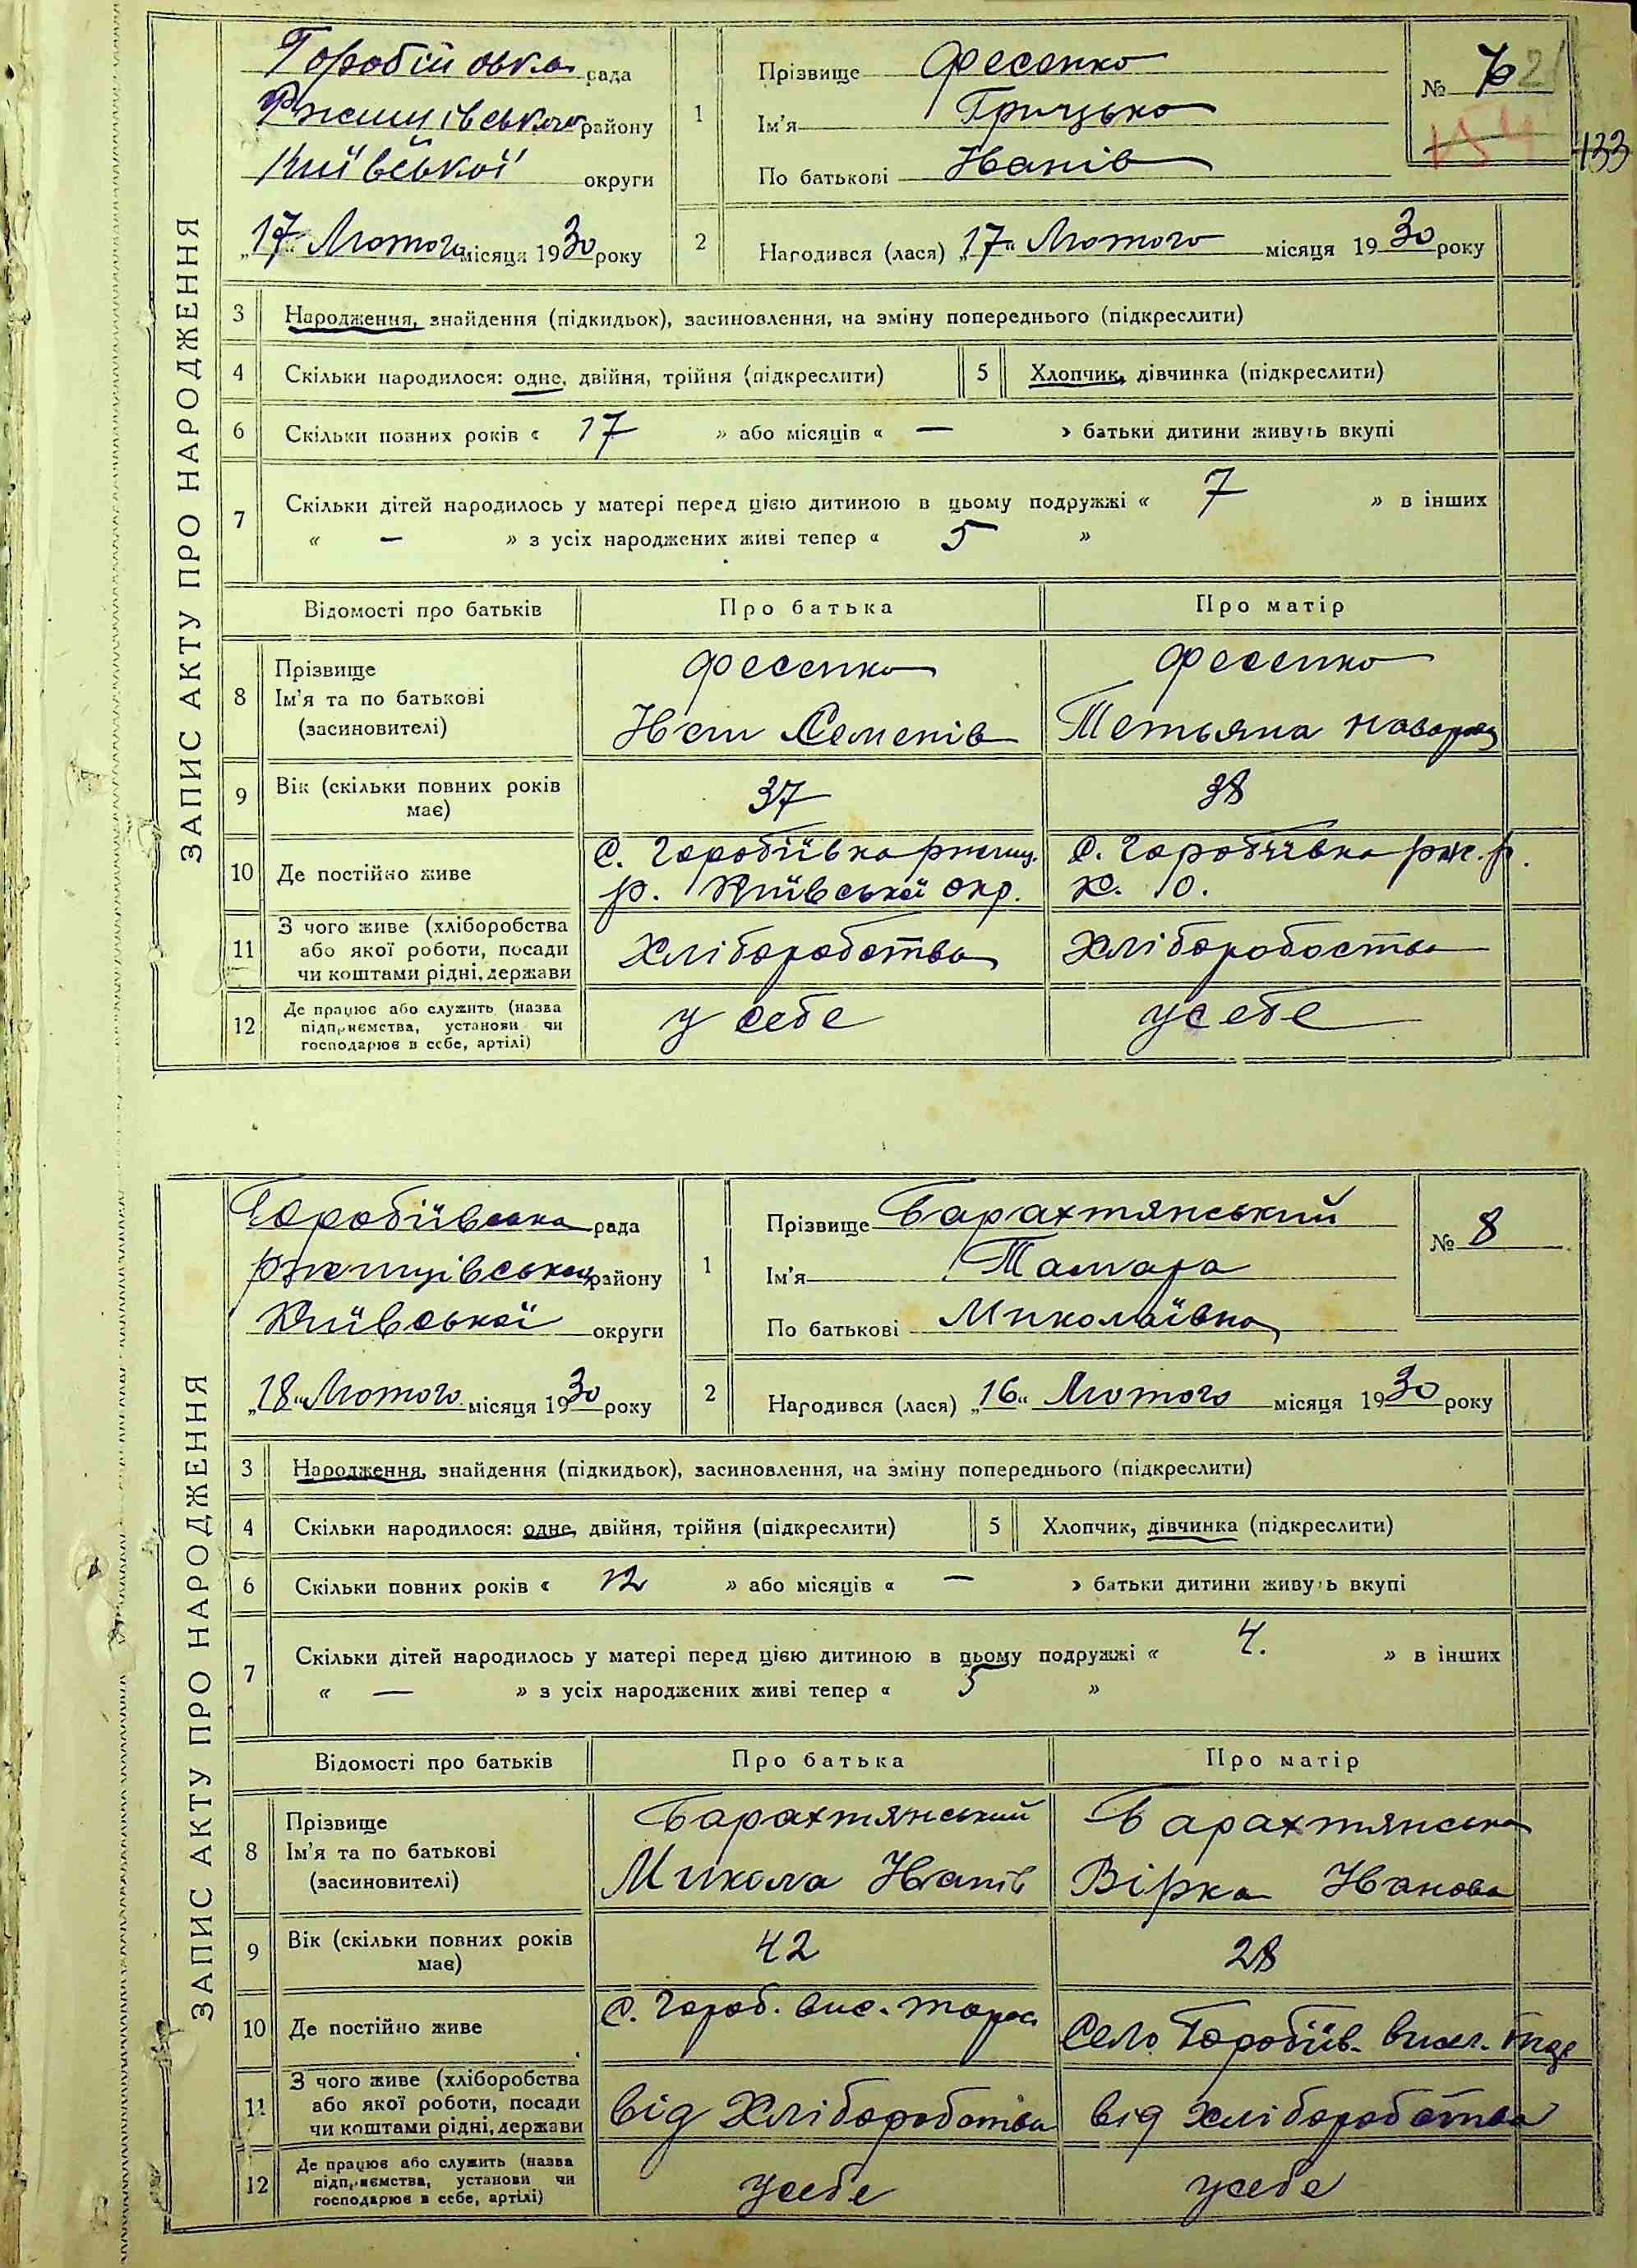 ЗАПИС АКТУ ПРО НАРОДЖЕННЯ
Горобійська рада
Ржищівського району
Київської округи
„17“ Лютого місяця 1930 року
1 Прізвище Фесенко
Ім'я Грицько
По батькові Іванів
№ 7
133
2 Народився (лася) „17“ Лютого місяця 1930 року
3 Народження, знайдення (підкидьок), засиновлення, на зміну попереднього (підкреслити)
4 Скільки народилося: одне, двійня, трійня (підкреслити) 5 Хлопчик, дівчинка (підкреслити)
6 Скільки повних років « 17 » або місяців « — » батьки дитини живуть вкупі
7 Скільки дітей народилось у матері перед цією дитиною в цьому подружжі « 7 » в інших
« — » з усіх народжених живі тепер « 5 »
Відомості про батьків Про батька Про матір
8 Прізвище Фесенко Фесенко
Ім'я та по батькові Іван Семенів Тетьяна
(засиновителі)
9 Вік (скільки повних років має) 37 38
10 Де постійно живе с. Горобіївка ржищ. с. Горобіївка рж. р.
р. Київської окр. К. О.
11 З чого живе (хліборобства
або якої роботи, посади Хліборобства Хліборобоства
чи коштами рідні, держави
12 Де працює або служить (назва
підприємства, установи чи у себе усебе
господарює в себе, артілі)
ЗАПИС АКТУ ПРО НАРОДЖЕННЯ
Горобіївська рада
Ржищівського району
Київської округи
„18“ Лютого місяця 1930 року
1 Прізвище Барахтянський
Ім'я Тамара
По батькові Миколаївна
№ 8
2 Народився (лася) „16“ Лютого місяця 1930 року
3 Народження, знайдення (підкидьок), засиновлення, на зміну попереднього (підкреслити)
4 Скільки народилося: одне, двійня, трійня (підкреслити) 5 Хлопчик, дівчинка (підкреслити)
6 Скільки повних років « 12 » або місяців « — » батьки дитини живуть вкупі
7 Скільки дітей народилось у матері перед цією дитиною в цьому подружжі « 4. » в інших
« — » з усіх народжених живі тепер « 5 »
Відомості про батьків Про батька Про матір
8 Прізвище Барахтянський Барахтянська
Ім'я та по батькові Микола Іванів Вірка Іванова
(засиновителі)
9 Вік (скільки повних років має) 42 28
10 Де постійно живе с. Гороб. вис. Тарас. Село Горобіїв. висел.
11 З чого живе (хліборобства
або якої роботи, посади від Хліборобства від хліборобства
чи коштами рідні, держави
12 Де працює або служить (назва
підприємства, установи чи усебе усебе
господарює в себе, артілі)